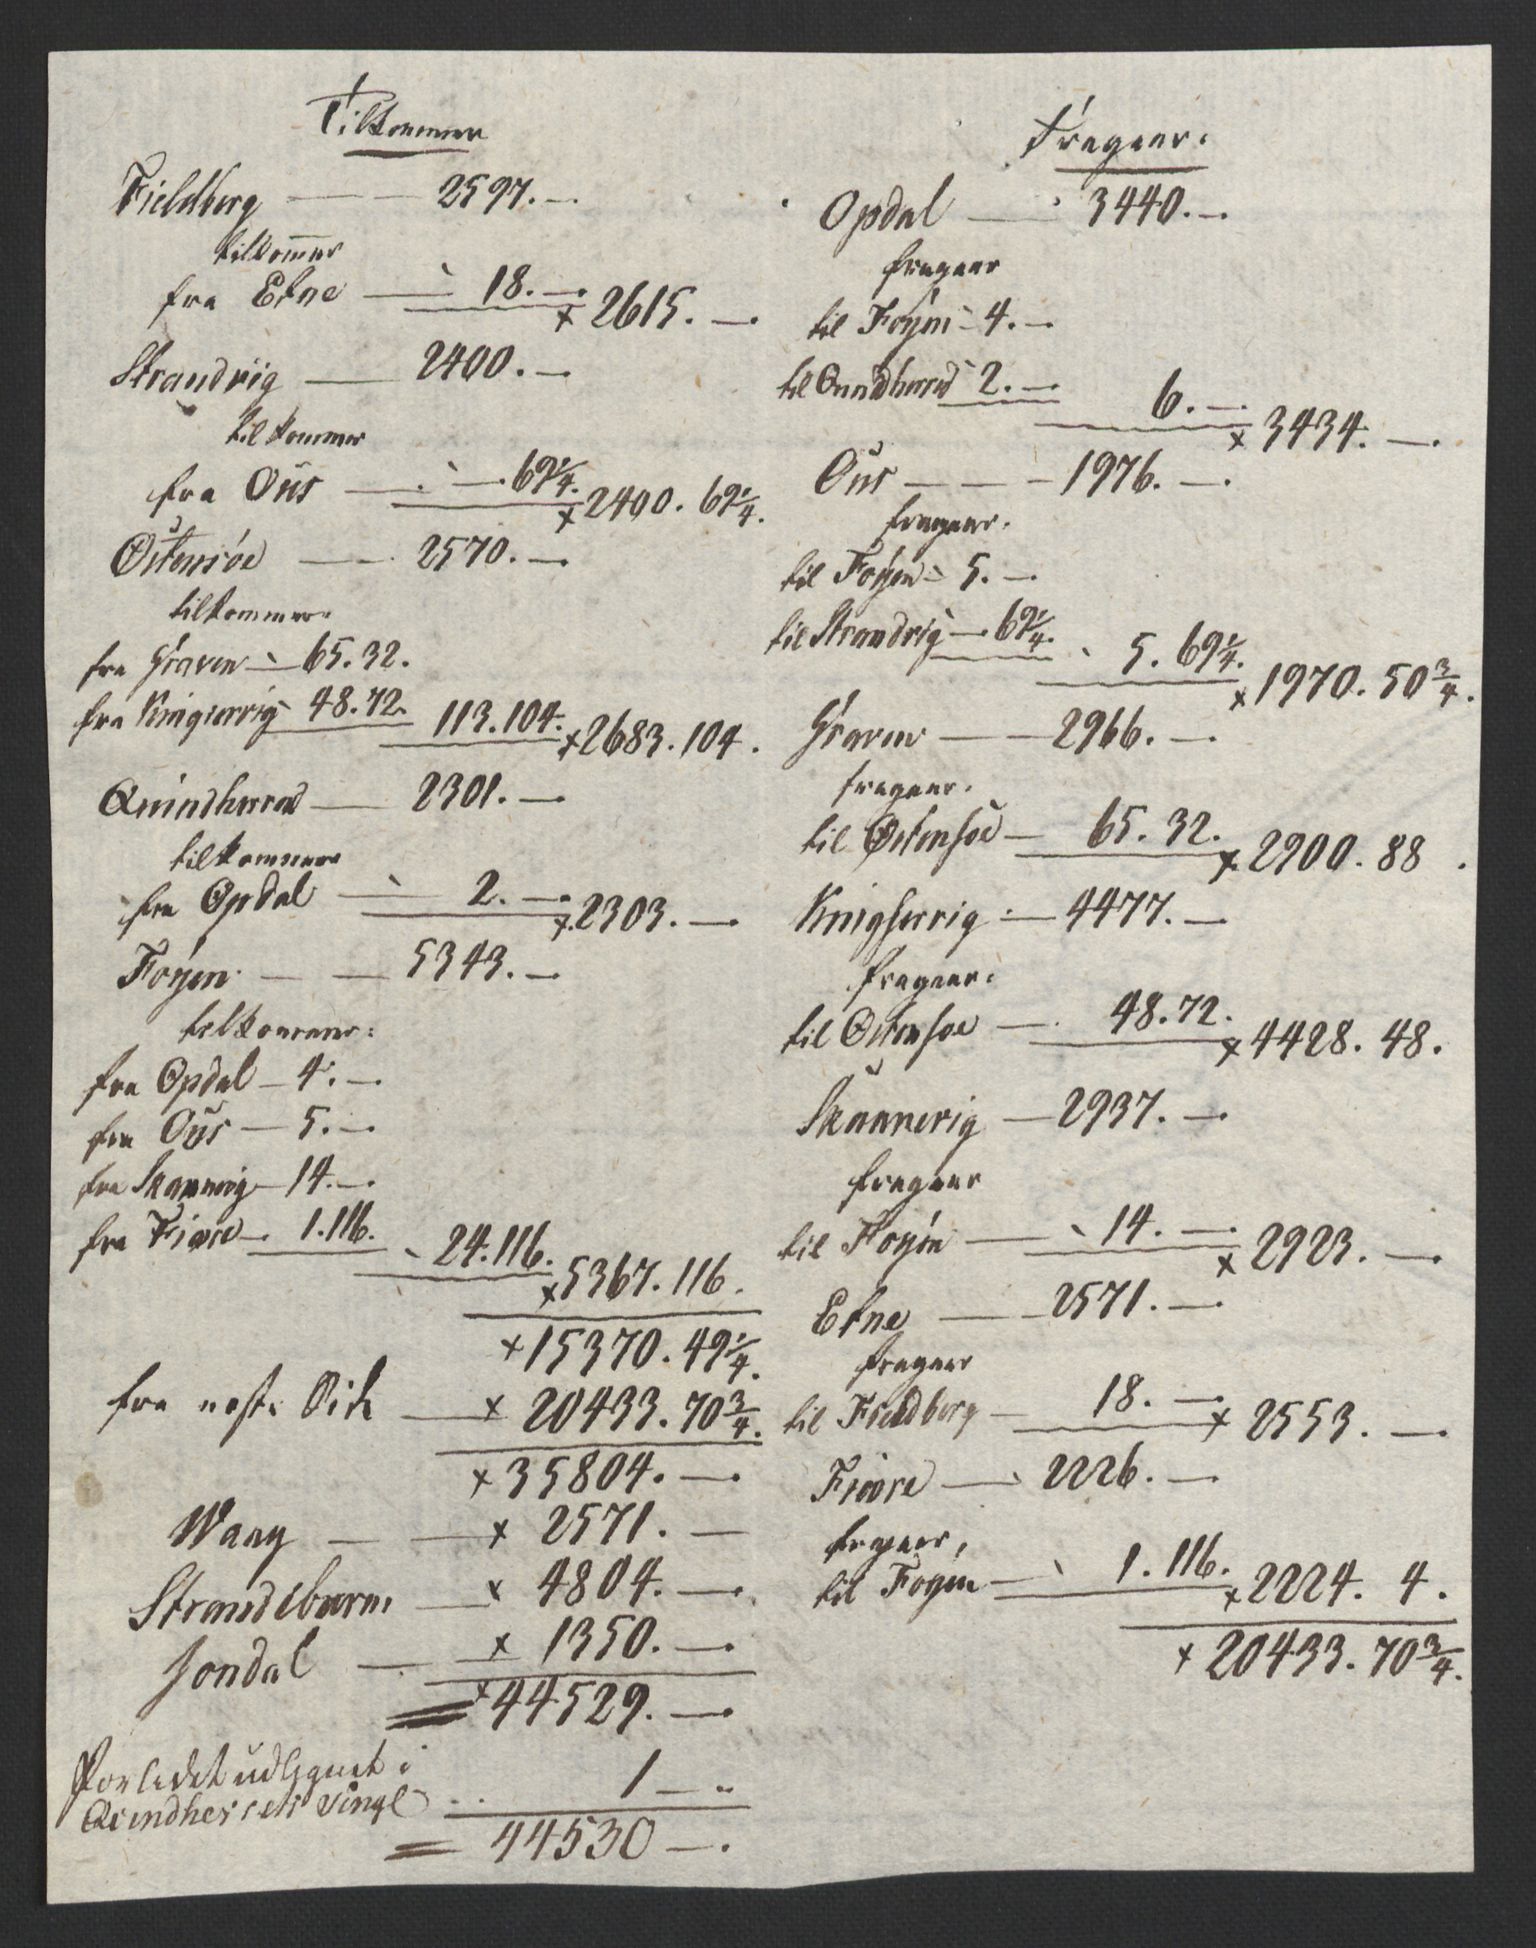 Tilkommer
Fieldberg — 2597. —
tilkommer
fra Etne — 18. — × 2615. —
Strandvig — 2400. —
tilkommer
fra Ous — " — 69 1/4. × 2400. 69 1/4.
Østensøe — 2570. —
tilkommer
fra Graven — 65. 32.
fra Kingservig 48. 72. 113. 104. × 2683. 104.
Quindherred — 2301. —
tilkommer
fra Opdal — 2. — × 2303. —
Føyen — 5343. —
tilkommer:
fra Opdal — 4. —
fra Ous — 5. —
fra Skaanevig — 14. —
fra Fiære — 1. 116. 24. 116. × 5367. 116.
× 15370. 49 1/4.
fra neste Side — × 20433. 70 3/4.
× 35804. —
Waag — × 2571. —
Strandebarm — × 4804. —
Jondal — × 1350. —
× 44529. —
udlignet i 1 —
44530 —.
Fragaar.
Opdal — 3440. —
fragaar
til Føyen — 4. —
til Quindherred 2. — 6. — × 3434. —
Ous — 1976. —
fragaar.
til Føyen — 5. —
til Strandvig — 69 1/4. 5. 69 1/4. × 1970. 50 3/4.
Graven — 2966. —
fragaar.
til Østensøe — 65. 32. × 2900. 88.
Kingservig — 4477. —
fragaar.
til Østensøe — 48. 72. × 4428. 48.
Skaanevig — 2937. —
fragaar
til Føyen — 14. — × 2923. —
Etne — 2571. —
fragaar
til Fieldberg — 18. — × 2553. —
Fiære — 2226. —
fragaar,
til Føyen — 1. 116. × 2224. 4.
× 20433. 70 3/4.